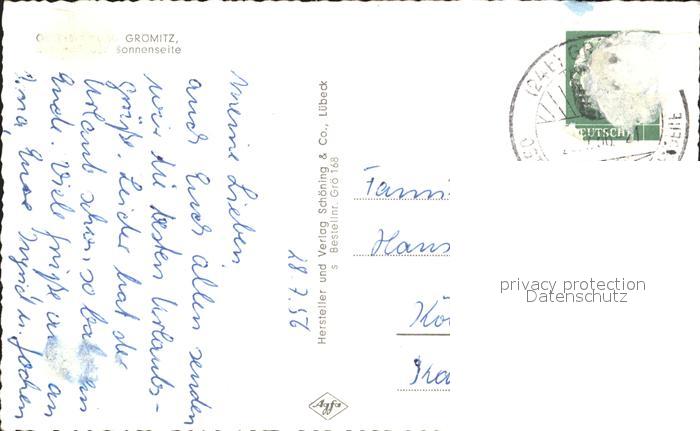 GRÖMITZ,
Sonnenseite
Meine Lieben
auch Euch allen senden
wir die besten Urlaubs-
grüße. Leider hat der
Urlaub schon so bald ein
Ende. Viele Grüße an
Eure Ingrid u. Jochen
28.7.56
Hersteller und Verlag Schöning & Co., Lübeck
s Bestellnr. Grö 168
Fami
Hans
Kö
Agfa
(24b) G
DEUTSCHE
privacy protection
Datenschutz